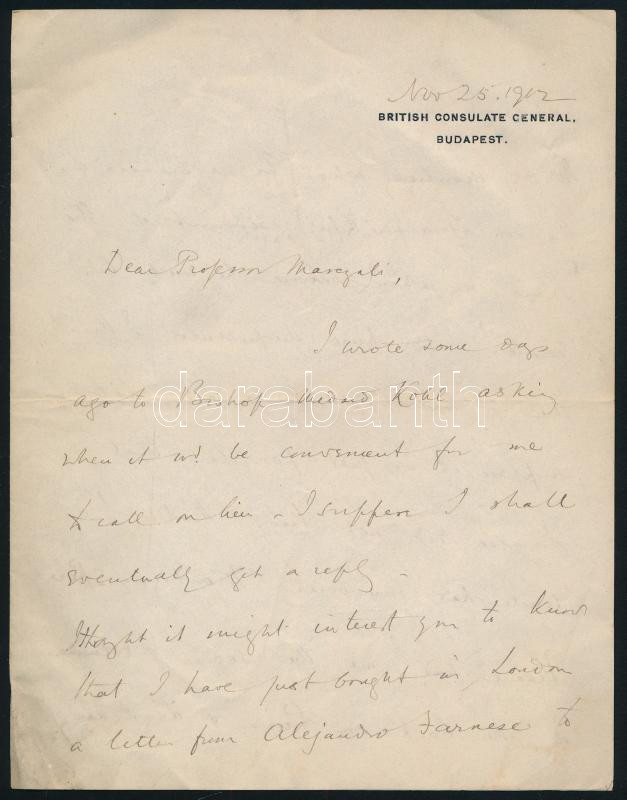 Nov 25. 1912
BRITISH CONSULATE GENERAL,
BUDAPEST.
Dear Professor Marczali,
I wrote some days
ago to Bishop Medard Kohl asking
when it wd. be convenient for me
to call on him – I suppose I shall
eventually get a reply –
I thought it might interest you to know
that I have just bought in London
a letter from Alejandro Farnese to
darabanth